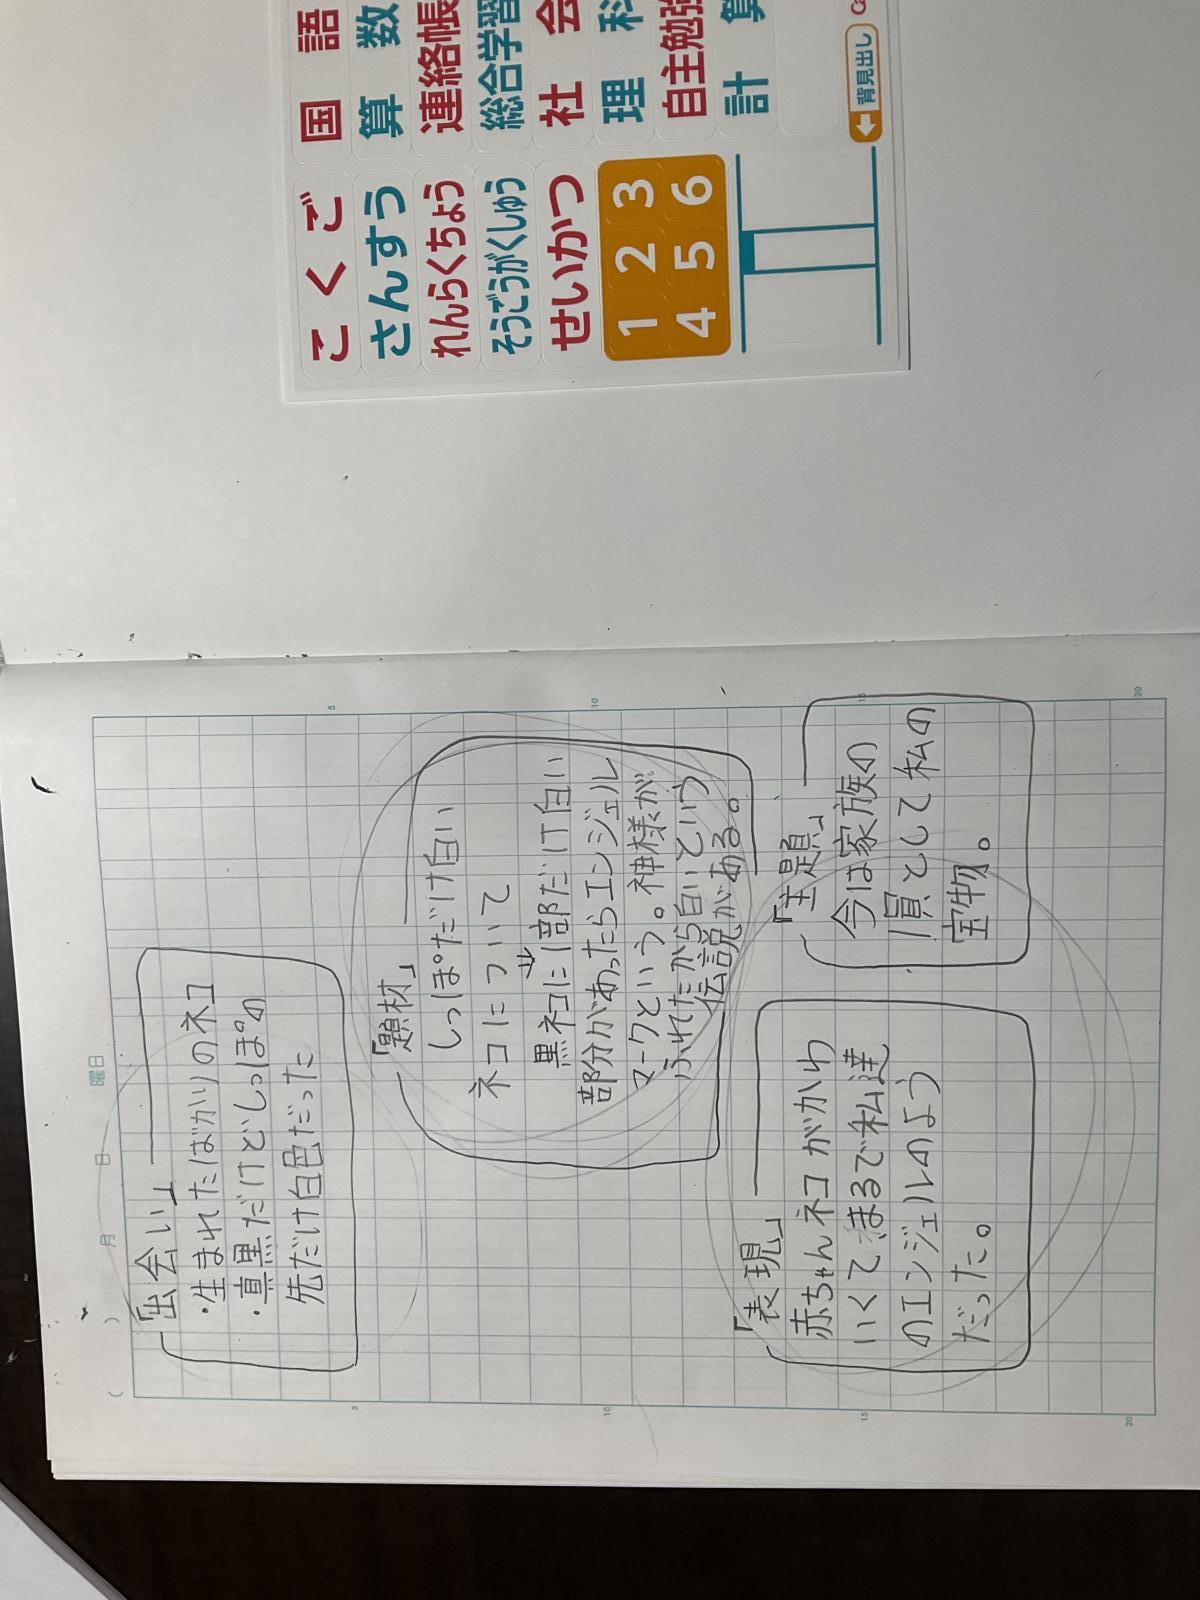 こくご
さんすう
れんらくちょう
そうごうがくしゅう
せいかつ
国語
算数
連絡帳
総合学習
社会
理科
自主勉強
計算
1 2 3
4 5 6
背見出し
月 日 曜日
5
10
15
20
「出会い」
・生まれたばかりのネコ
・真黒だけどしっぽの
先だけ白色だった
「題材」
しっぽだけ白い
ネコについて
黒ネコに1部だけ白い
部分があったらエンジェル
マークという。神様が
ふれたから白いという
伝説がある。
「表現」
赤ちゃんネコがかわ
いくてまるで私達
のエンジェルのよう
だった。
「主題」
今は家族の
1員として私の
宝物。
5
10
15
20